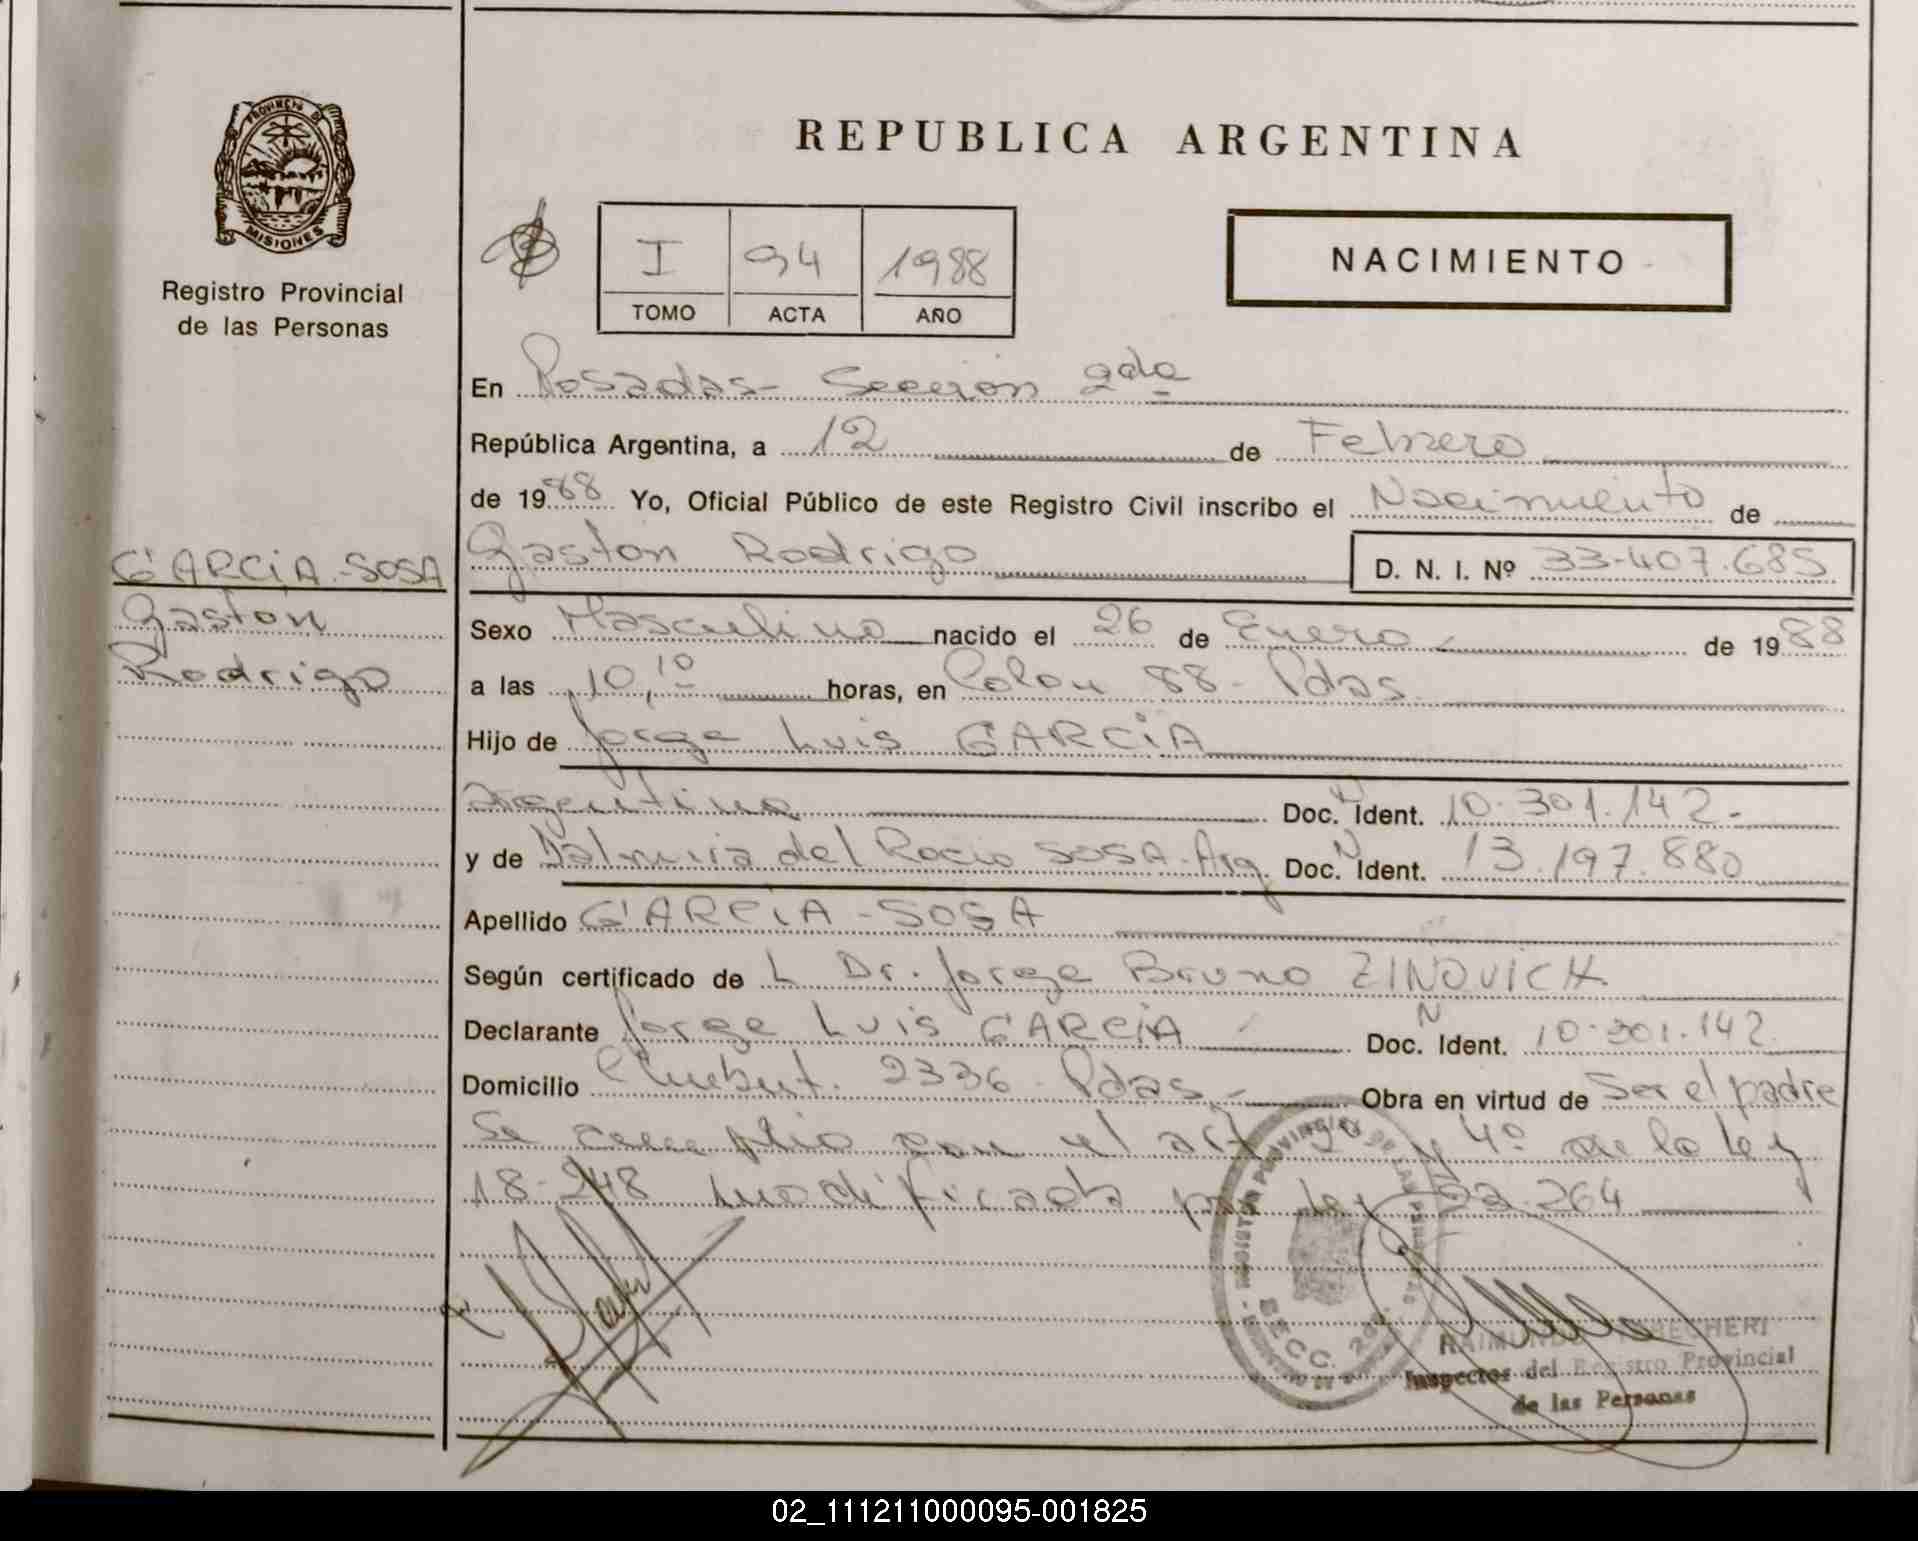 PROVINCIA DE
MISIONES
Registro Provincial
de las Personas
REPUBLICA ARGENTINA
I 94 1988
TOMO ACTA AÑO
NACIMIENTO
En Posadas - Sección 2da
República Argentina, a 12 de Febrero
de 1988 Yo, Oficial Público de este Registro Civil inscribo el Nacimiento de
Gastón Rodrigo D. N. I. Nº 33-407.685
GARCIA-SOSA
Gastón
Rodrigo
Sexo Masculino nacido el 26 de Enero de 1988
a las 10,10 horas, en Colon 88 - Pdas
Hijo de Jorge Luis GARCIA
Argentino Doc. N Ident. 10.301.142-
y de Dalmira del Rocio SOSA - Arg. Doc. N Ident. 13.197.880
Apellido GARCIA-SOSA
Según certificado de L Dr. Jorge Bruno ZINOVICH
Declarante Jorge Luis GARCIA Doc. N Ident. 10.301.142
Domicilio Chubut. 2336 - Pdas Obra en virtud de Ser el padre
Se cumplio con el art 3º y 4º de la ley
18-248 modificada por ley 22.264
REGISTRO PROVINCIAL DE LAS PERSONAS
SECC. 2da.
Inspector del Registro Provincial
de las Personas
02_111211000095-001825